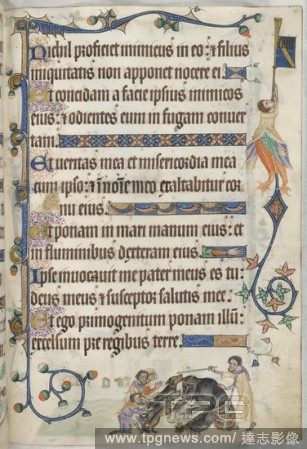 Nichil proficiet inimicus in eo: et filius
iniquitatis non apponet nocere ei
Et concidam a facie ipsius inimicos
eius: et odientes eum in fugam conuer
tam
Et ueritas mea et misericordia mea
cum ipso: et in nomine meo exaltabitur cor
nu eius.
Et ponam in mari manum eius: et
in fluminibus dexteram eius.
Ipse inuocauit me pater meus es tu:
deus meus et susceptor salutis mee:
Et ego primogenitum ponam illū:
excelsum pre regibus terre.
TPG
www.tpgnews.com/達志影像